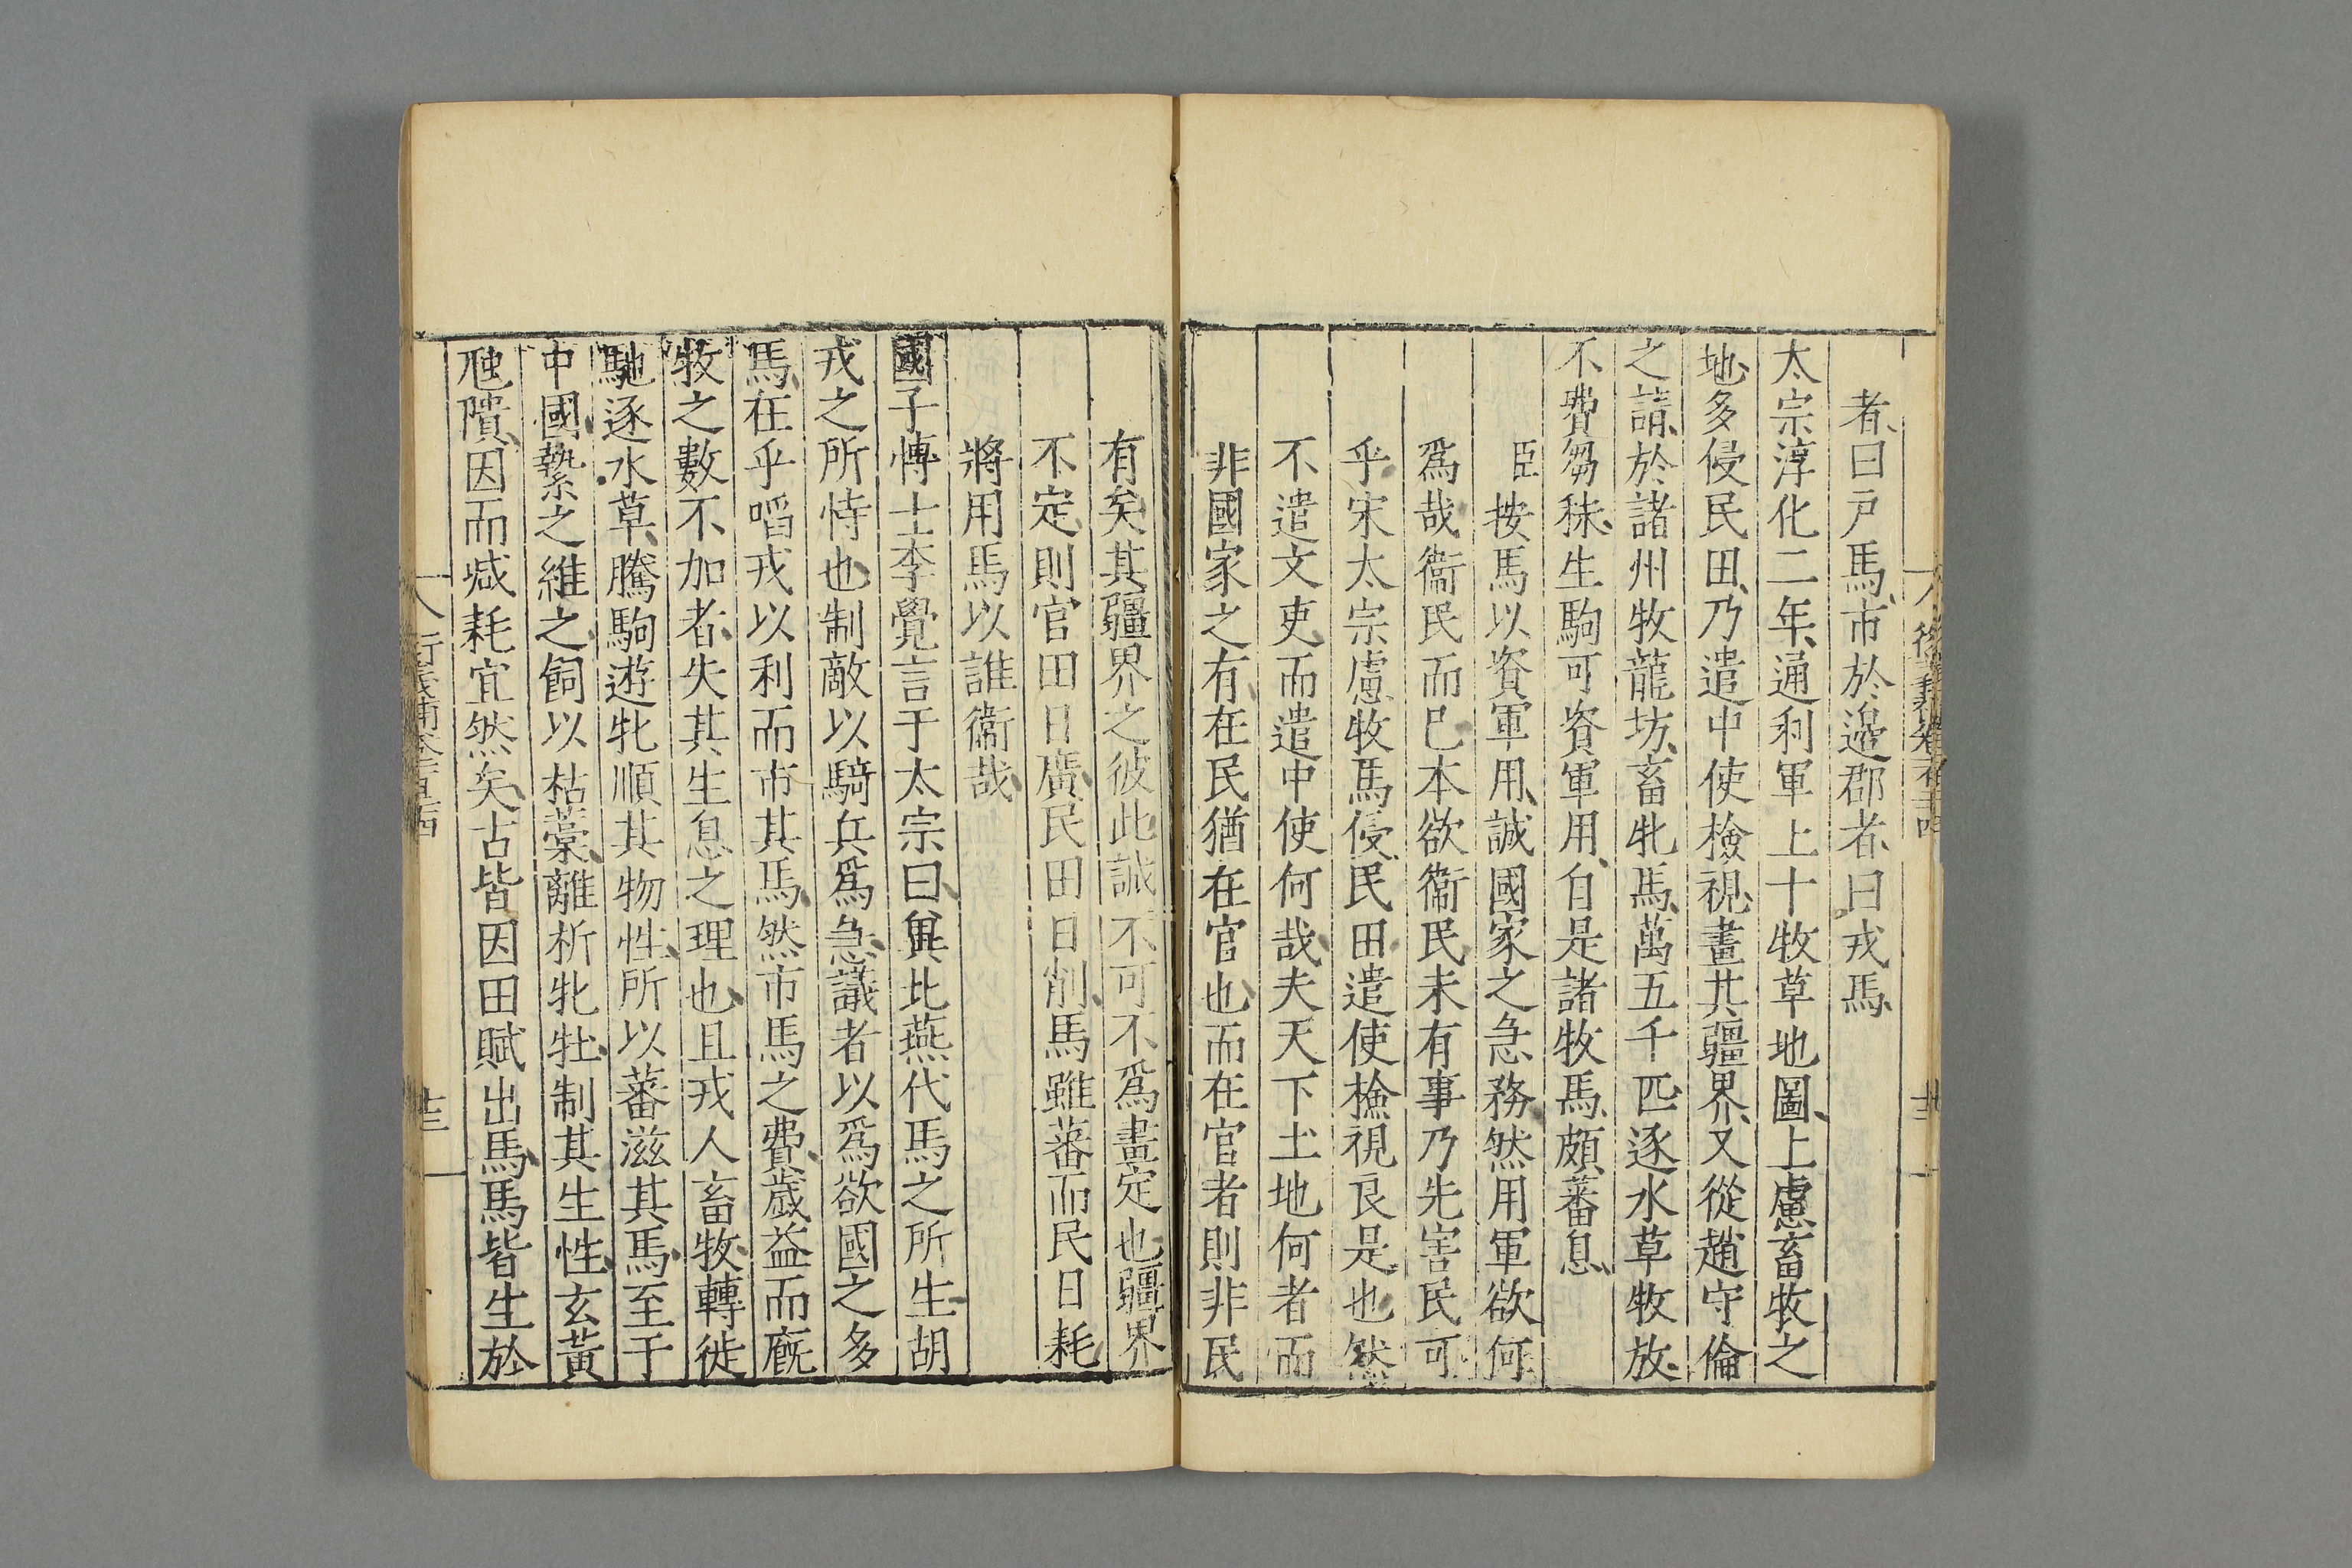 者曰戸馬市於邉郡者曰戎馬
太宗淳化二年通利軍上十牧草地圖上慮畜牧之
地多侵民田乃遣中使檢視畫其疆界又從趙守倫
之請於諸州牧龍坊畜牝馬萬五千匹逐水草牧放
不費芻秣生駒可資軍用自是諸牧馬頗蕃息
臣按馬以資軍用誠國家之急務然用軍欲何
爲哉衞民而已本欲衞民未有事乃先害民可
乎宋太宗慮牧馬侵民田遣使檢視良是也然
不遣文吏而遣中使何哉夫天下土地何者而
非國家之有在民猶在官也而在官者則非民
有矣其疆界之彼此誠不可不爲畫定也疆界
不定則官田日廣民田日削馬雖蕃而民日耗
將用馬以誰衞哉
國子博士李覺言于太宗曰冀北燕代馬之所生胡
戎之所恃也制敵以騎兵爲急議者以爲欲國之多
馬在乎啗戎以利而市其馬然市馬之費歲益而廐
牧之數不加者失其生息之理也且戎人畜牧轉徙
馳逐水草騰駒遊牝順其物性所以蕃滋其馬至于
中國縶之維之飼以枯藁離析牝牡制其生性玄黃
虺隤因而減耗宜然矣古皆因田賦出馬馬皆生於